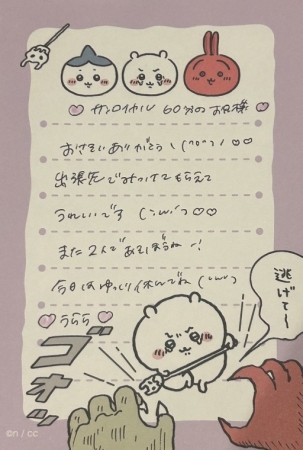 サンロイヤル 60分のお兄様
おさそいありがとう \(^o^)/ ♡♡
出張先でみつけてもらえて
うれしいです (˘ω˘) ♡♡
また2人であそぼうねー!
今日はゆっくり休んでね (˘ω˘)
うらら
逃げて〜
ゴオッ
©n / cc